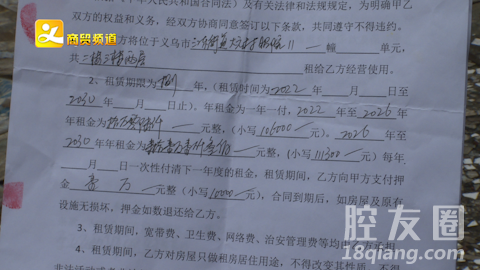 商贸频道
《中华人民共和国合同法》及有关法律和法规规定，为明确甲乙
双方的权益和义务，经双方协商同意签订以下条款，共同遵守不得违约。
方将位于义乌市 一幢 单元，
共 租给乙方经营使用。
2、租赁期限为 捌 年，（租赁时间为2022年 月 日至
2030年 月 日止）。年租金为一年一付，2022年至2026年
年租金为 元整，（小写106000元）。2026年至
2030年年租金为 元整，（小写111300元）每年
月 日一次性付清下一年度的租金，租赁期间，乙方向甲方支付押
金 壹万 元整（小写10000元），合同到期后，如房屋及原有
设施无损坏，押金如数退还给乙方。
3、租赁期间，宽带费、卫生费、网络费、治安管理费等均由乙方承担
4、租赁期间，乙方对房屋只做租房居住用途，不得改变其性质，不得
腔友圈
18qiang.com